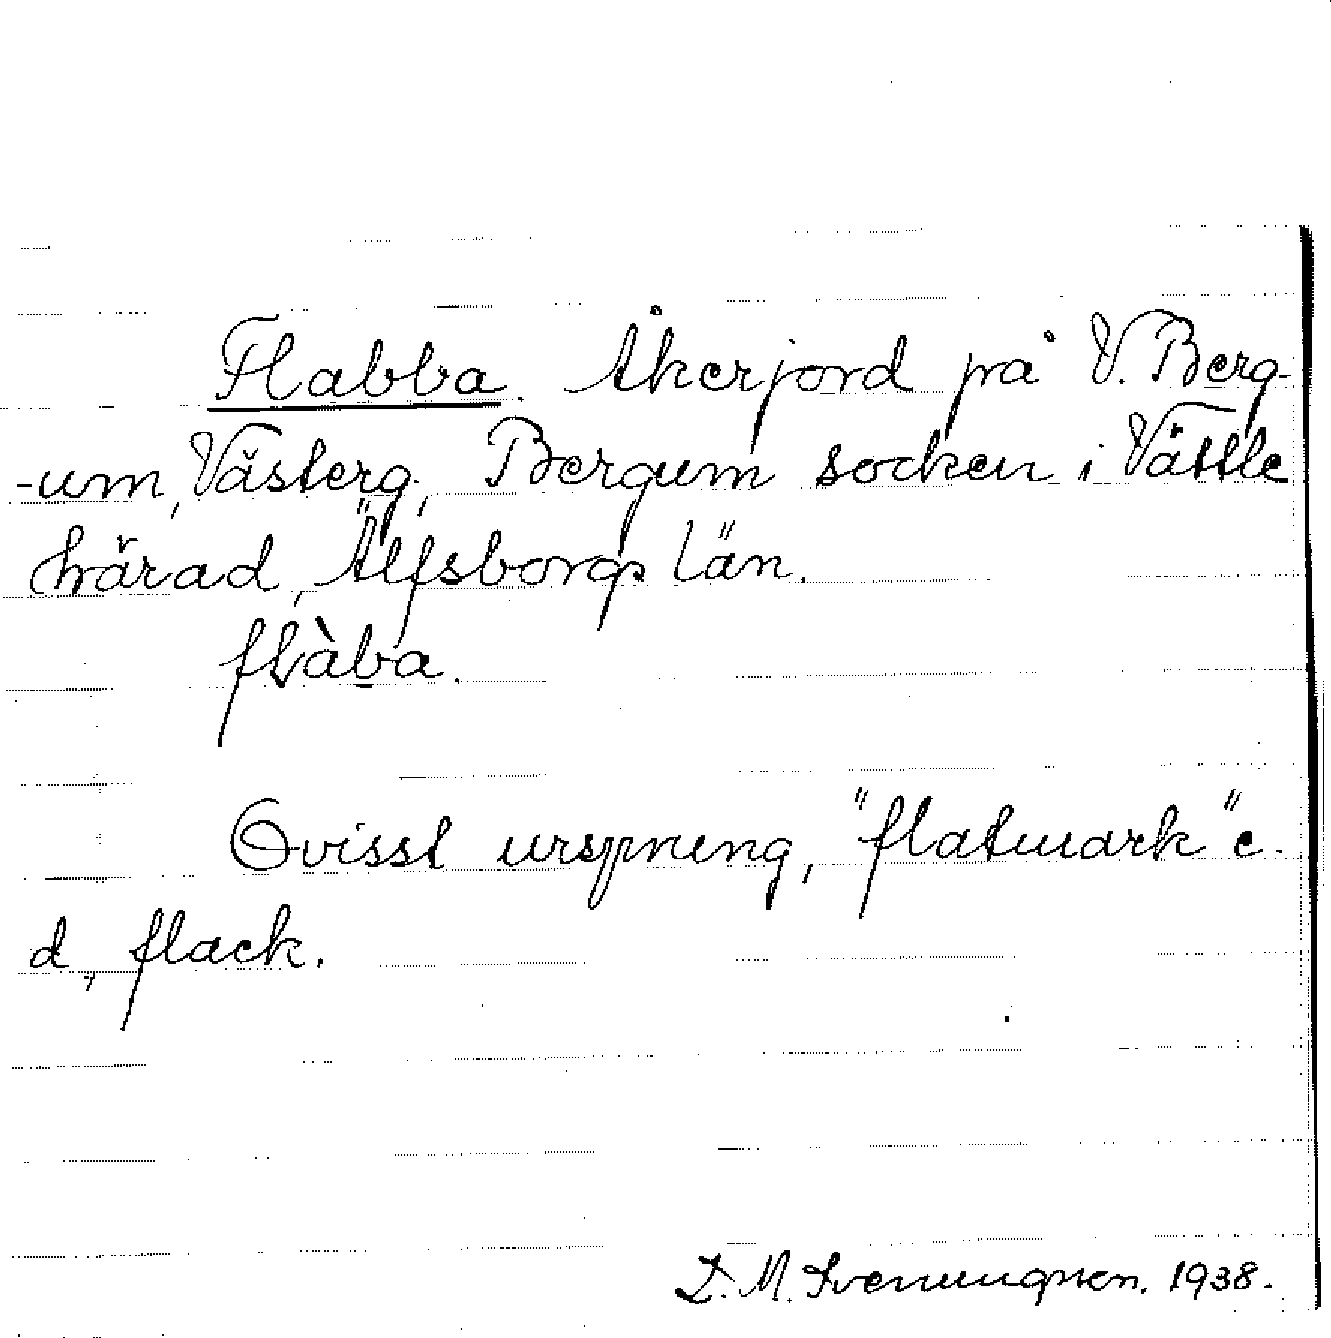 Flabba. Åkerjord på V. Berg-
-um, Västerg., Bergum socken i Vättle
härad, Älfsborgs län.
flàba.
Ovisst ursprung, "flatmark" e.
d., flack.
D. M. Svenungsson. 1938.